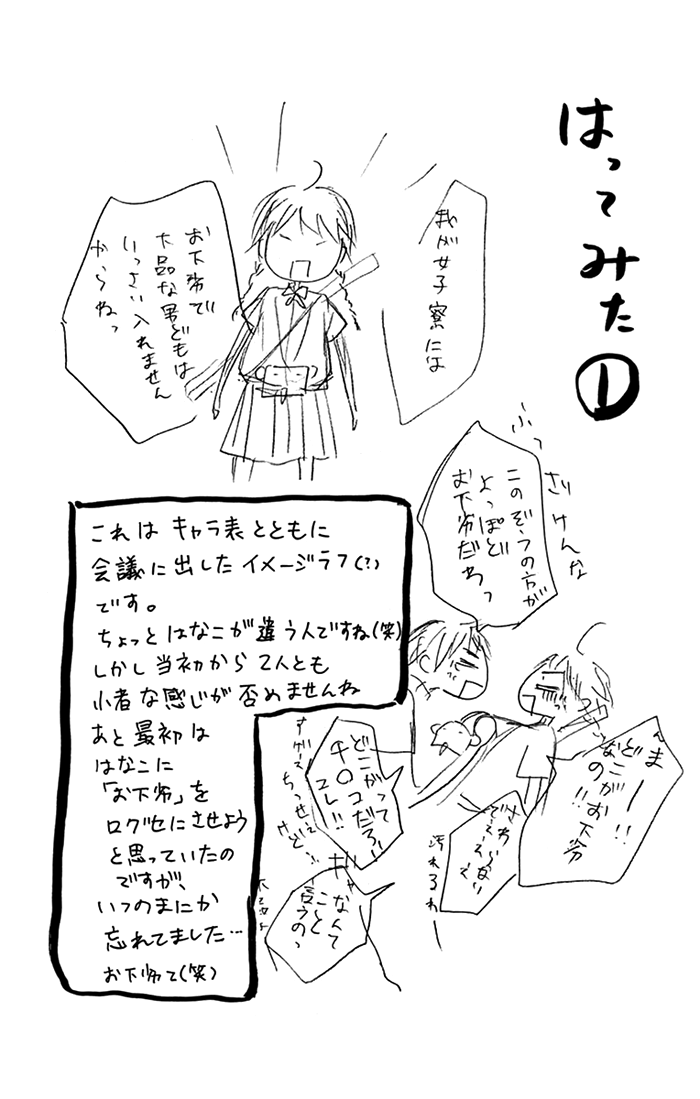 はってみた①
我が女子寮には
お下劣で
下品な男どもは
いっさい入れません
からねっ
ふっ
ざけんな
このぞうの方が
よっぽど
お下劣だわっ
まー!!
どこがお下劣
なのが!!
さわらない
でええええ
汚れるわー
どこがって
チ○コだろ!!
コレ!!
なんて
こと
言うのっ
これは キャラ表とともに
会議に出したイメージラフ(?)
です。
ちょっとはなこが違う人ですね(笑)
しかし当初から2人とも
小者な感じが否めませんね
あと最初は
はなこに
「お下劣」を
口グセにさせよう
と思っていたの
ですが、
いつのまにか
忘れてました…
お下劣て(笑)